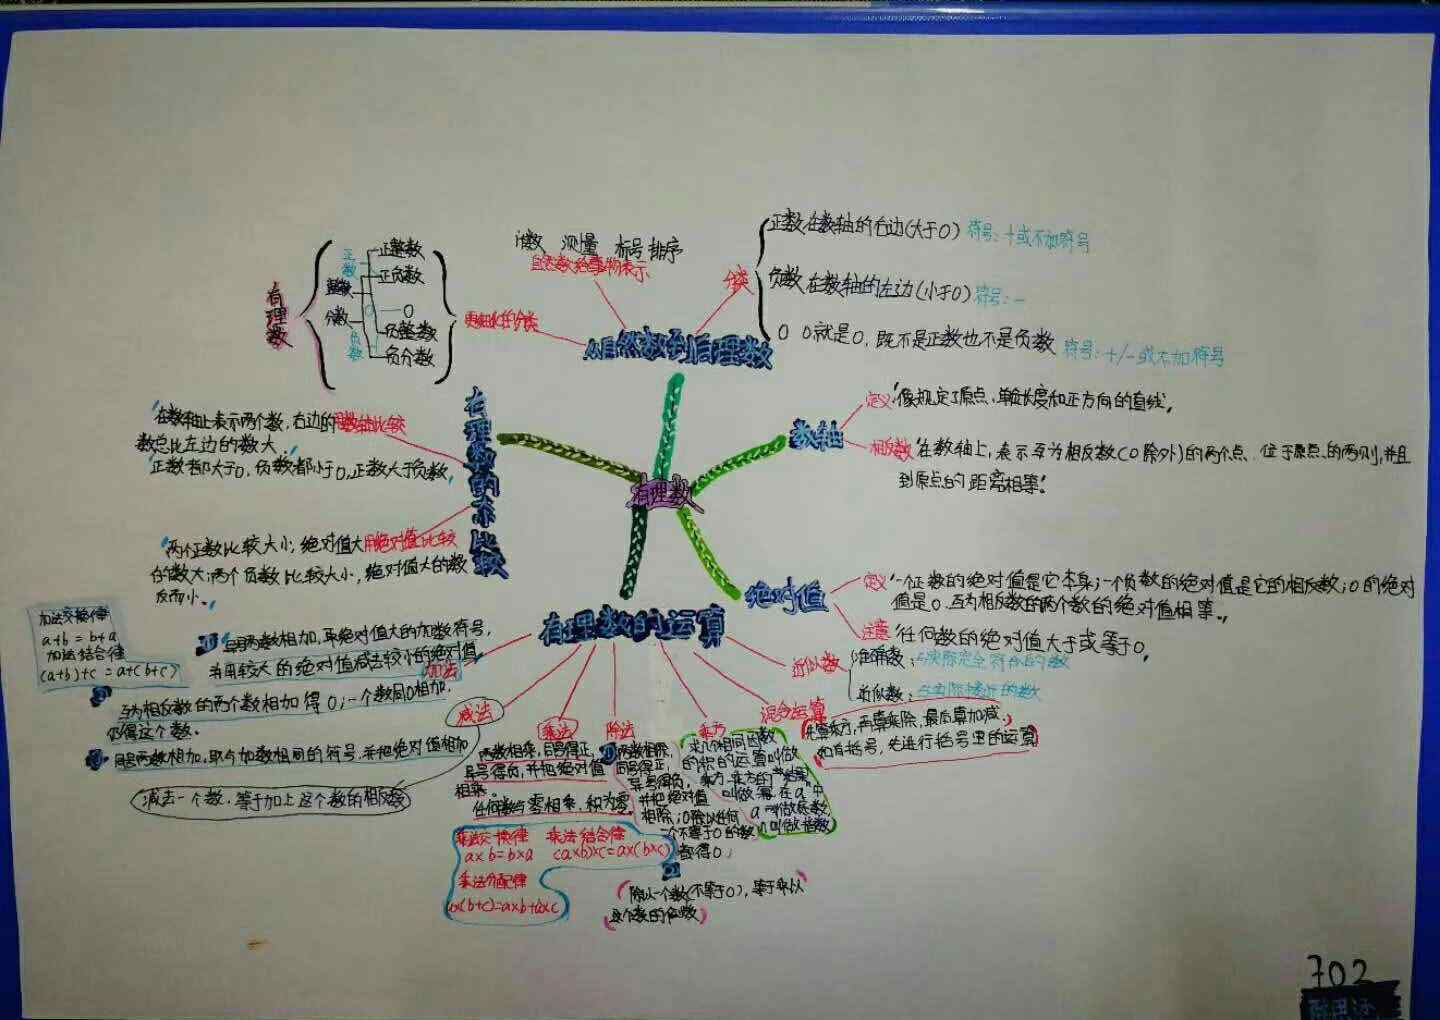 有理数
从自然数到有理数
计数 测量 标号 排序
分类
正数 在数轴的右边(大于0) 符号:+或不加符号
负数 在数轴的左边(小于0) 符号:-
0 0就是0,既不是正数也不是负数 符号:+/-或不加符号
有理数
正数
整数
分数
负数
正整数
正负数
0——0
负整数
负分数
数轴
定义
“像规定了原点,单位长度和正方向的直线。
相反数
“在数轴上,表示互为相反数(0除外)的两个点,位于原点的两侧,并且
到原点的距离相等。”
绝对值
定义
“一个正数的绝对值是它本身;一个负数的绝对值是它的相反数;0的绝对
值是0.互为相反数的两个数的绝对值相等。”
注意
“任何数的绝对值大于或等于0。
有理数的大小比较
用数轴比较
“在数轴上表示两个数,右边的
数总比左边的数大。
“正数都大于0,负数都小于0,正数大于负数”
用绝对值比较
“两个正数比较大小,绝对值大
的数大;两个负数比较大小,绝对值大的数
反而小。”
有理数的运算
加法
加法交换律
a+b=b+a
加法结合律
(a+b)+c=a+(b+c)
异号两数相加,取绝对值大的加数符号,
并用较大的绝对值减去较小的绝对值
互为相反数的两个数相加得0;一个数同0相加,
仍得这个数。
同号两数相加,取与加数相同的符号,并把绝对值相加
减法
减去一个数,等于加上这个数的相反数
乘法
两数相乘,同号得正,
异号得负,并把绝对值
相乘。
任何数与零相乘,积为零
乘法交换律 乘法结合律
a×b=b×a (a×b)×c=a×(b×c)
乘法分配律
a×(b+c)=a×b+a×c
除法
①两数相除,
同号得正,
异号得负,
并把绝对值
相除;0除以任何
一个不等于0的数
都得0;
②
(除以一个数(不等于0),等于乘以
这个数的倒数)
乘方
求几个相同因数
的积的运算叫做
乘方.乘方的“结果”
叫做幂.在aⁿ中
a叫做底数
n叫做指数
混合运算
先算乘方,再算乘除,最后算加减.
如有括号,先进行括号里的运算
近似数
准确数:与实际完全符合的数
近似数:与实际接近的数
702